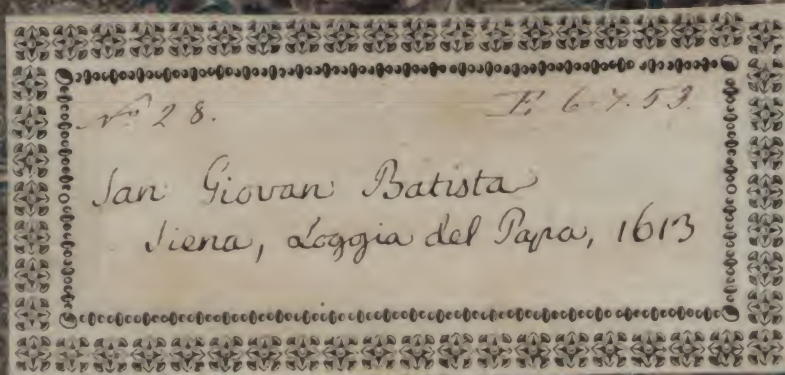 No 28. E. 6.7.53.
San Giovan Batista
Siena, Loggia del Papa, 1613